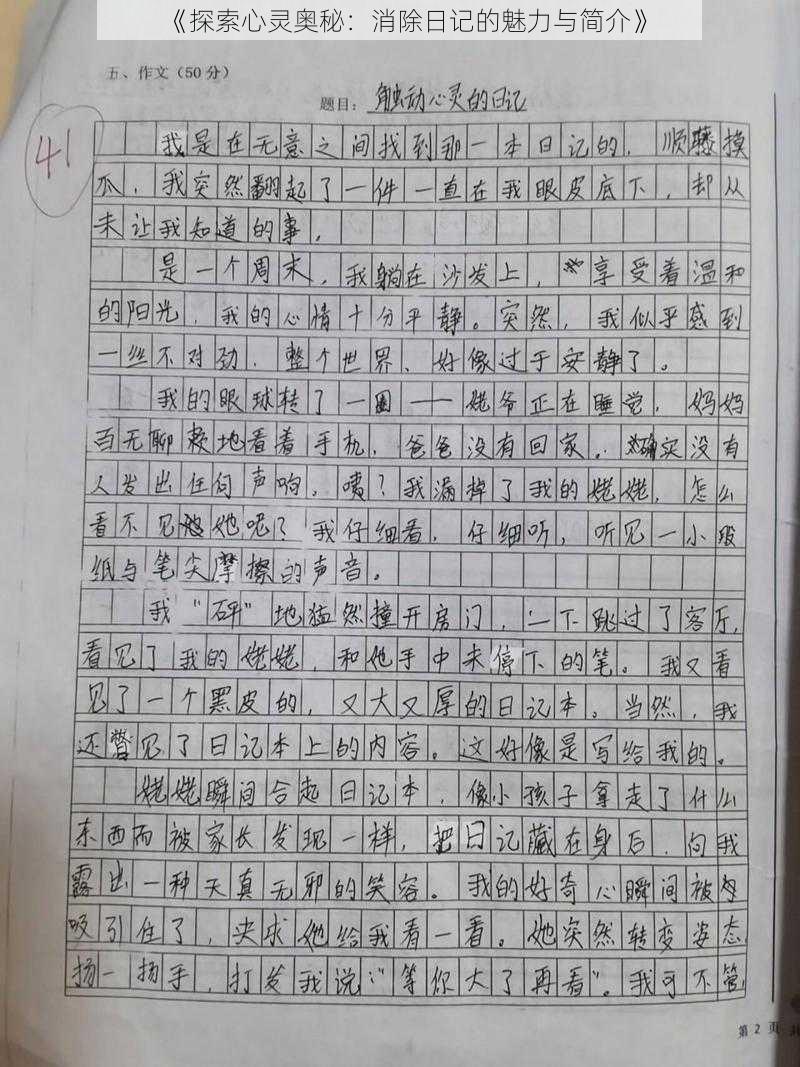 《探索心灵奥秘：消除日记的魅力与简介》
五、作文（50分）
题目：触动心灵的日记
41
我是在无意之间找到那一本日记的，顺藤摸
瓜，我突然翻起了一件一直在我眼皮底下，却从
未让我知道的事，
是一个周末，我躺在沙发上，享受着温和
的阳光，我的心情十分平静。突然，我似乎感到
一丝不对劲，整个世界，好像过于安静了。
我的眼球转了一圈——姥爷正在睡觉，妈妈
百无聊赖地看着手机，爸爸没有回家，确实没有
人发出任何声响，咦？我漏掉了我的姥姥，怎么
看不见她呢？我仔细看，仔细听，听见一小股
纸与笔尖摩擦的声音。
我“砰”地猛然撞开房门，一下跳过了客厅，
看见了我的姥姥，和她手中未停下的笔。我又看
见了一个黑皮的，又大又厚的日记本。当然，我
还瞥见了日记本上的内容。这好像是写给我的。
姥姥瞬间合起日记本，像小孩子拿走了什么
东西而被家长发现一样，把日记藏在身后，向我
露出一种天真无邪的笑容。我的好奇心瞬间被
吸引住了，央求她给我看一看。她突然转变姿态，
扬一扬手，打发我说：“等你大了再看”。我可不管，
第2页 共